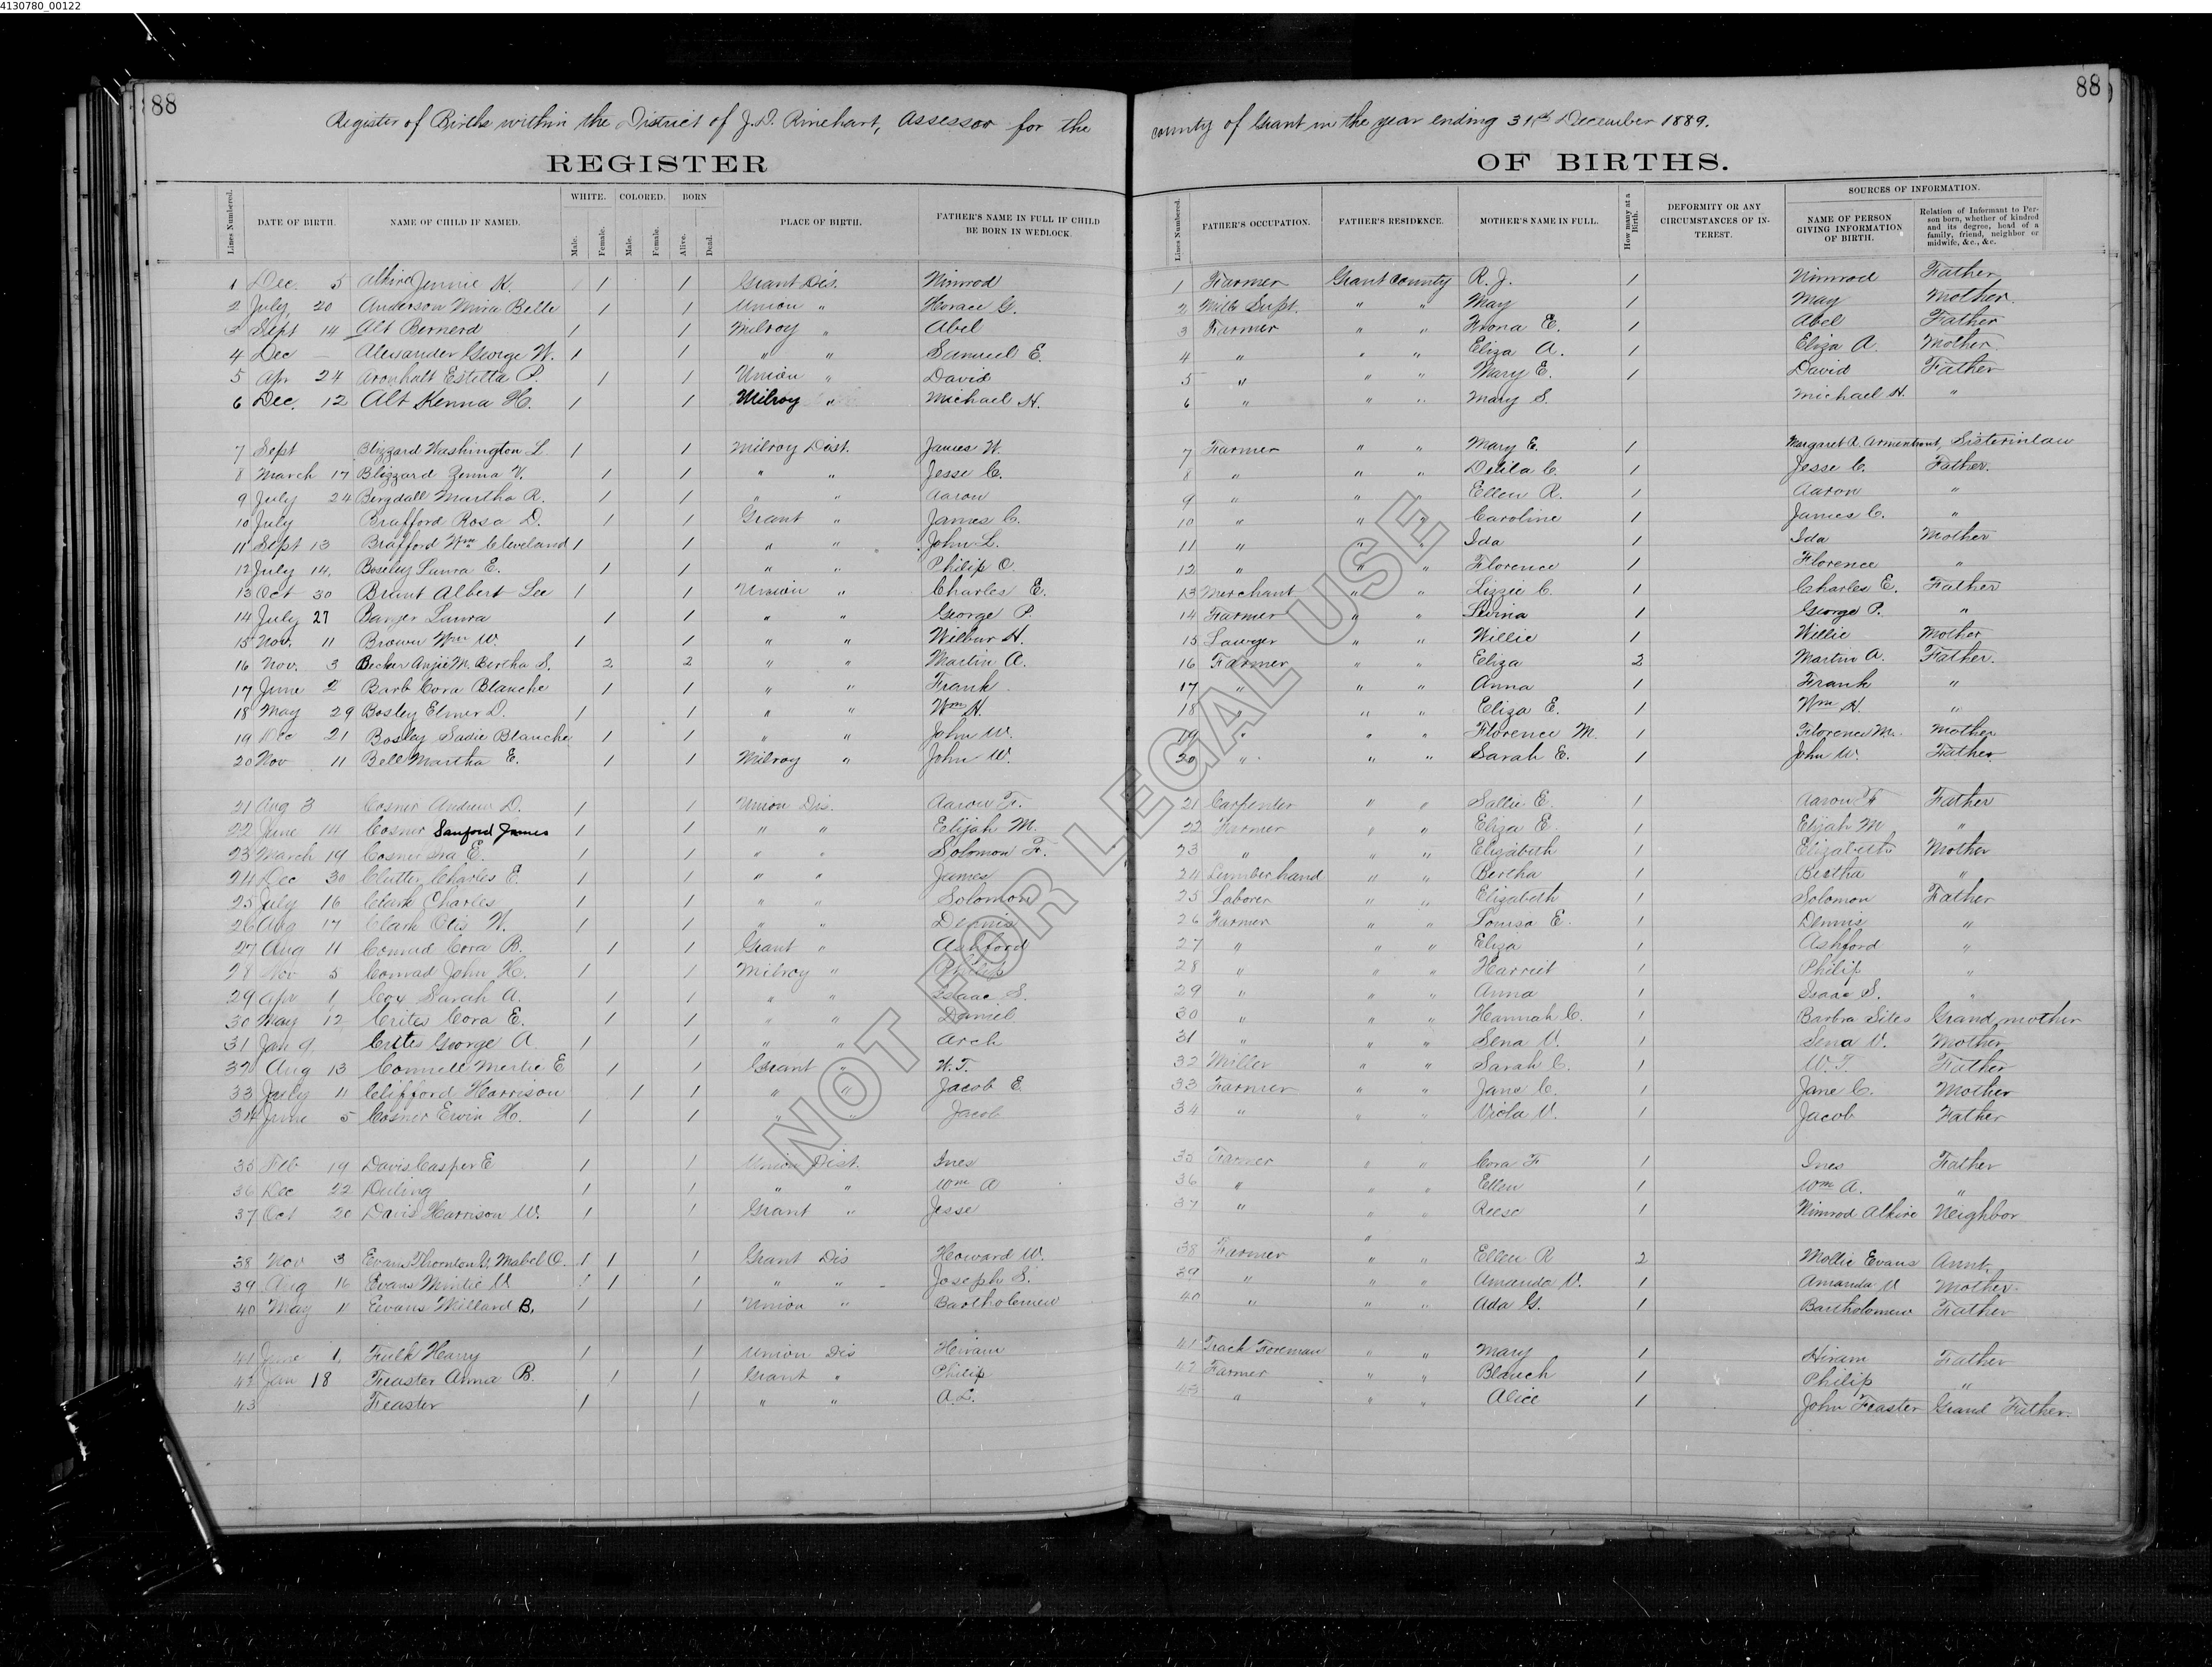 4130780_00122
88
88
Register of Births within the District of J. D. Rinehart, Assessor for the county of Grant in the year ending 31st December 1889.
REGISTER OF BIRTHS.
Lines Numbered. DATE OF BIRTH. NAME OF CHILD IF NAMED. WHITE. Male. Female. COLORED. Male. Female. BORN Alive. Dead. PLACE OF BIRTH. FATHER'S NAME IN FULL IF CHILD BE BORN IN WEDLOCK. Lines Numbered. FATHER'S OCCUPATION. FATHER'S RESIDENCE. MOTHER'S NAME IN FULL. How many at a Birth. DEFORMITY OR ANY CIRCUMSTANCES OF INTEREST. SOURCES OF INFORMATION. NAME OF PERSON GIVING INFORMATION OF BIRTH. Relation of Informant to Person born, whether of kindred and its degree, head of a family, friend, neighbor or midwife, &c., &c.
1 Dec. 5 Alkire Jennie K. 1 1 Grant Dis. Nimrod 1 Farmer Grant County R. J. 1 Nimrod Father
2 July, 20 Anderson Mina Belle 1 1 Union " Horace G. 2 " " May 1 May Mother.
3 Sept 14 Alt Bernerd 1 1 Milroy " Abel 3 Farmer " " E. 1 Abel Father
4 Dec — Alexander George W. 1 1 " " Samuel E. 4 " " " Eliza A. 1 Eliza A. Mother
5 Apr 24 Aronhalt Estella P. 1 1 Union " David 5 " " " Mary E. 1 David Father
6 Dec. 12 Alt Kenna H. 1 1 Milroy " Michael H. 6 " " " Mary S. Michael H. "
7 Sept Blizzard Washington L 1 1 Milroy Dist. James W. 7 Farmer " " Mary E. 1 Margaret A. Armentrout, Sisterinlaw
8 March 17 Blizzard Zenna V. 1 1 " " Jesse C. 8 " " " Delila C. 1 Jesse C. Father.
9 July 24 Bergdall Martha R. 1 1 " " Aaron 9 " " " Ellen R. 1 Aaron "
10 July Brafford Rosa D. 1 1 Grant " James C. 10 " " " Caroline 1 James C. "
11 Sept 13 Brafford Wm Cleveland 1 1 " " John L. 11 " " " Ida 1 Ida Mother
12 July 14, Boseley Laura E. 1 1 " " Philip O. 12 " " " Florence 1 Florence "
13 Oct 30 Brant Albert Lee 1 1 Union " Charles E. 13 Merchant " " Lizzie C. 1 Charles E. Father
14 July 27 Barger Laura 1 1 " " George P. 14 Farmer " " Levina 1 George P. "
15 Nov. 11 Brown Wm W. 1 1 " " Wilbur H. 15 Lawyer " " Willie 1 Willie Mother
16 Nov. 3 Becker Anjie M. Bertha S. 2 2 " " Martin A. 16 Farmer " " Eliza 2 Martin A. Father.
17 June 2 Barb Cora Blanche 1 1 " " Frank 17 " " " Anna 1 Frank "
18 May 29 Bosley Elmer D. 1 1 " " Wm H. 18 " " " Eliza E. 1 Wm H. "
19 Dec 21 Bosley Sadie Blanche 1 1 " " John W. 19 " " " Florence M. 1 Florence M. Mother
20 Nov 11 Bell Martha E. 1 1 Milroy " John W. 20 " " " Sarah E. 1 John W. Father
21 Aug 3 Cosner Andrew D. 1 1 Union Dis. Aaron F. 21 Carpenter " " Sallie E. 1 Aaron F Father
22 June 14 Cosner Sanford James 1 1 " " Elijah M. 22 Farmer " " Eliza E. 1 Elijah M "
23 March 19 Cosner Ira E. 1 1 " " Solomon F. 23 " " " Elizabeth 1 Elizabeth Mother
24 Dec 30 Clutter Charles E. 1 1 " " James 24 Lumber hand " " Bertha 1 Bertha "
25 July 16 Clark Charles 1 1 " " Solomon 25 Laborer " " Elizabeth 1 Solomon Father
26 Aug 17 Clark Otis W. 1 1 " " Dennis 26 Farmer " " Louisa E. 1 Dennis "
27 Aug 11 Conrad Cora B. 1 1 Grant " Ashford 27 " " " Eliza 1 Ashford "
28 Nov 5 Conrad John H. 1 1 Milroy " Philip 28 " " " Harriet 1 Philip "
29 Apr 1, Cox Sarah A. 1 1 " " Isaac S. 29 " " " Anna 1 Isaac S. "
30 May 12 Crites Cora E. 1 1 " " Daniel 30 " " " Hannah C. 1 Barbra Sites Grand mother
31 Jan 9, Crites George A 1 1 " " Arch 31 " " " Sena V. 1 Sena V. Mother
32 Aug 13 Connell Mertie E 1 1 Grant " W. T. 32 Miller " " Sarah C. 1 W. T. Father
33 July 11 Clifford Harrison 1 1 " " Jacob E. 33 Farmer " " Jane C. 1 Jane C. Mother
34 June 5 Cosner Ervin H. 1 1 " " Jacob 34 " " " Viola V. 1 Jacob Father
35 Feb 19 Davis Casper E 1 1 Union Dist. Ines 35 Farmer " " Cora F 1 Ines Father
36 Dec 22 Duling 1 1 " " Wm A 36 " " " Ellen 1 Wm A. "
37 Oct 20 Davis Harrison W. 1 1 Grant " Jesse 37 " " " Reese 1 Nimrod Alkire Neighbor
38 Nov 3 Evans Thornton V, Mabel O. 1 1 1 Grant Dis Howard W. 38 Farmer " " Ellen R 2 Mollie Evans Aunt.
39 Aug 16 Evans Mintie V 1 1 " " Joseph S. 39 " " " Amanda V. 1 Amanda V Mother.
40 May 11 Evans Willard B. 1 1 Union " Bartholomew 40 " " " Ada G. 1 Bartholomew Father
41 June 1, Fulk Harry 1 1 Union Dis Hiram 41 Track Foreman " " Mary 1 Hiram Father
42 Jan 18 Feaster Anna B. 1 1 Grant " Philip 42 Farmer " " Blanch 1 Philip "
43 Feaster 1 1 " " A. L. 43 " " " Alice 1 John Feaster Grand Father.
NOT FOR LEGAL USE